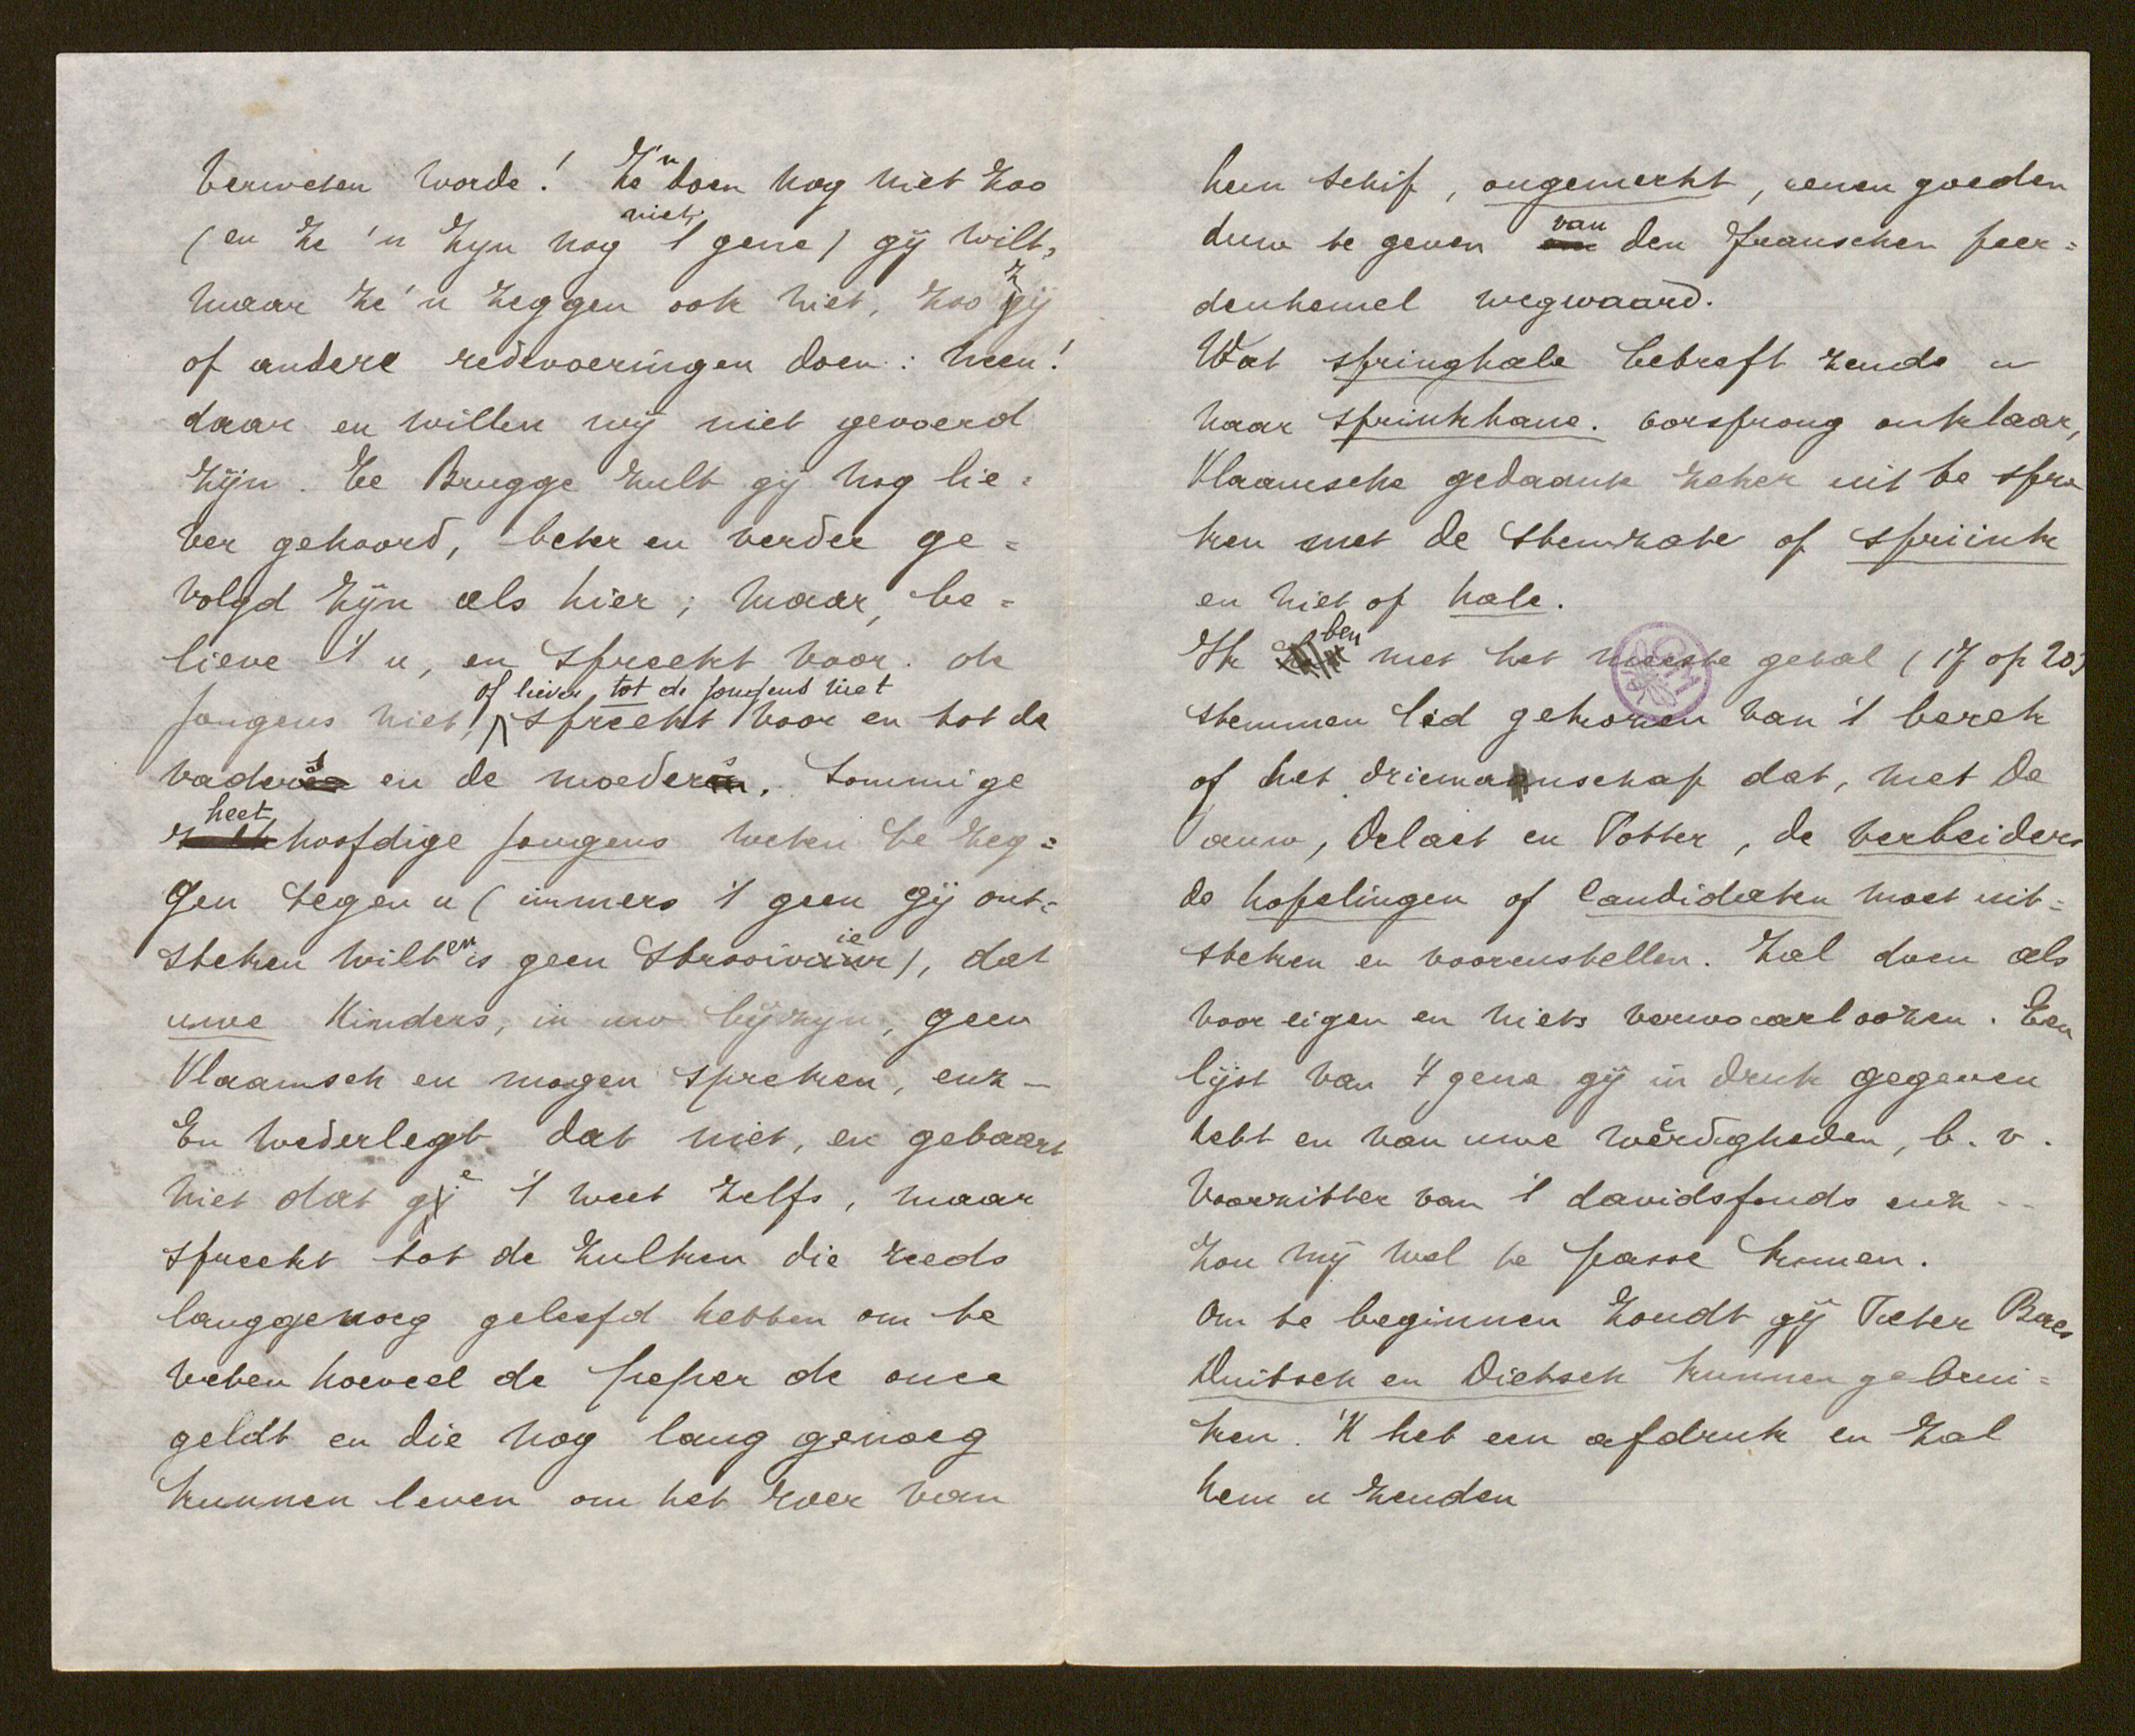 verweten worde! Ze 'n doen nog niet zoo
(en ze 'n zyn nog niet 't gene) gij wilt,
maar ze 'n zeggen ook niet, zoo zij
of andere redevoeringen doen: neen!
daar en willen wij niet gevoerd
zijn. Te Brugge zult gij nog lie=
ver gehoord, beter en verder ge=
volgd zijn als hier; maar, be=
lieve 't u, en spreekt voor de
jongens niet, of liever, tot de jongens niet spreekt voor en tot de
vaders en de moeders. Sommige
heethoofdige jongens weten te zeg=
gen tegen u (immers 't geen gij ont=
steken wilt en is geen strooivier), dat
uwe kinders, in uw bijzyn, geen
Vlaamsch en mogen spreken, enz –
En wederlegt dat niet, en gebaart
niet dat ge 't weet zelfs, maar
spreekt tot de zulken die reeds
langgenoeg geleefd hebben om te
weten hoeveel de peper de once
geldt en die nog lang genoeg
kunnen leven om het roer van
hun schip, ongemerkt, eenen goeden
duw te geven van den franschen peer=
denhemel wegwaard.
Wat springhale betreft zende u
naar sprinkhane. oorsprong onklaar,
Vlaamsche gedaante zeker uit te spre
ken met de stemzate op spriink
en niet op hale.
Ik ben met het meeste getal (17 op 20)
stemmen lid gekozen van 't berek
of het driemanschap dat, met De
Pauw, Delaet en Potter, de verbeiders
de hopelingen of Candidaten moet uit=
steken en voorenstellen. Zal doen als
voor eigen en niets verwaarloozen. Een
lijst van 't gene gij in druk gegeven
hebt en van uwe weerdigheden, b. v.
Voorzitter van 't davidsfonds enz --
zou mij wel te passe komen.
Om te beginnen zoudt gij Pieter Baes
Duitsch en Dietsch kunnen gebrui=
ken. 'K heb een afdruk en zal
hem u zenden